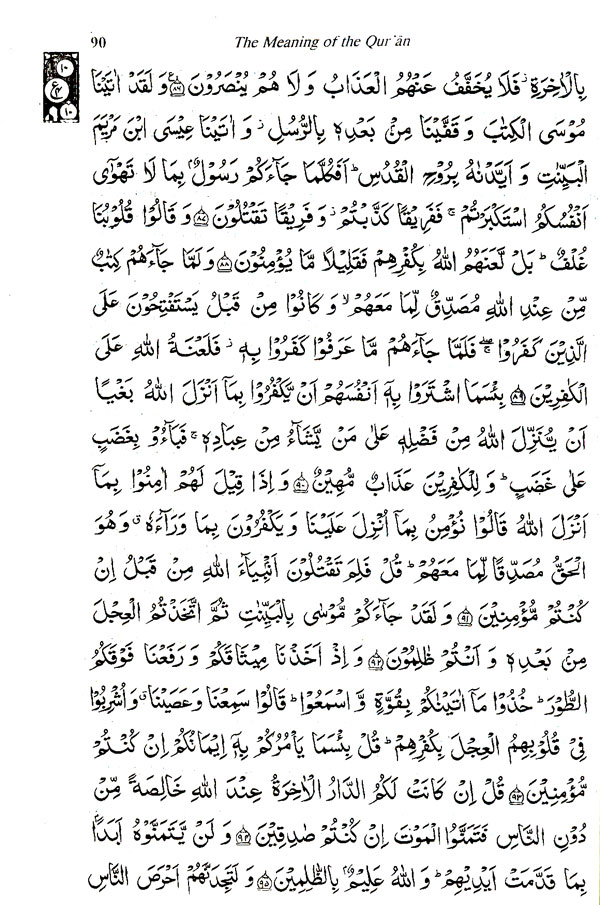 90 The Meaning of the Qur'ān
بِالْاٰخِرَةِ ۫ فَلَا يُخَفَّفُ عَنْهُمُ الْعَذَابُ وَ لَا هُمْ يُنْصَرُوْنَ ﴿۸۷﴾ وَ لَقَدْ اٰتَيْنَا
مُوْسَى الْكِتٰبَ وَ قَفَّيْنَا مِنْۢ بَعْدِهٖ بِالرُّسُلِ ۫ وَ اٰتَيْنَا عِيْسَى ابْنَ مَرْيَمَ
الْبَيِّنٰتِ وَ اَيَّدْنٰهُ بِرُوْحِ الْقُدُسِ ؕ اَفَكُلَّمَا جَآءَكُمْ رَسُوْلٌۢ بِمَا لَا تَهْوٰۤى
اَنْفُسُكُمُ اسْتَكْبَرْتُمْ ۚ فَفَرِيْقًا كَذَّبْتُمْ ۫ وَ فَرِيْقًا تَقْتُلُوْنَ ﴿۸۸﴾ وَ قَالُوْا قُلُوْبُنَا
غُلْفٌ ؕ بَلْ لَّعَنَهُمُ اللّٰهُ بِكُفْرِهِمْ فَقَلِيْلًا مَّا يُؤْمِنُوْنَ ﴿۸۸﴾ وَ لَمَّا جَآءَهُمْ كِتٰبٌ
مِّنْ عِنْدِ اللّٰهِ مُصَدِّقٌ لِّمَا مَعَهُمْ ۙ وَ كَانُوْا مِنْ قَبْلُ يَسْتَفْتِحُوْنَ عَلَى
الَّذِيْنَ كَفَرُوْا ۚۖ فَلَمَّا جَآءَهُمْ مَّا عَرَفُوْا كَفَرُوْا بِهٖ ۫ فَلَعْنَةُ اللّٰهِ عَلَى
الْكٰفِرِيْنَ ﴿۸۹﴾ بِئْسَمَا اشْتَرَوْا بِهٖۤ اَنْفُسَهُمْ اَنْ يَّكْفُرُوْا بِمَاۤ اَنْزَلَ اللّٰهُ بَغْيًا
اَنْ يُّنَزِّلَ اللّٰهُ مِنْ فَضْلِهٖ عَلٰى مَنْ يَّشَآءُ مِنْ عِبَادِهٖ ۚ فَبَآءُوْ بِغَضَبٍ
عَلٰى غَضَبٍ ؕ وَ لِلْكٰفِرِيْنَ عَذَابٌ مُّهِيْنٌ ﴿۹۰﴾ وَ اِذَا قِيْلَ لَهُمْ اٰمِنُوْا بِمَاۤ
اَنْزَلَ اللّٰهُ قَالُوْا نُؤْمِنُ بِمَاۤ اُنْزِلَ عَلَيْنَا وَ يَكْفُرُوْنَ بِمَا وَرَآءَهٗ ۗ وَ هُوَ
الْحَقُّ مُصَدِّقًا لِّمَا مَعَهُمْ ؕ قُلْ فَلِمَ تَقْتُلُوْنَ اَنْۢبِيَآءَ اللّٰهِ مِنْ قَبْلُ اِنْ
كُنْتُمْ مُّؤْمِنِيْنَ ﴿۹۱﴾ وَ لَقَدْ جَآءَكُمْ مُّوْسٰى بِالْبَيِّنٰتِ ثُمَّ اتَّخَذْتُمُ الْعِجْلَ
مِنْۢ بَعْدِهٖ وَ اَنْتُمْ ظٰلِمُوْنَ ﴿۹۲﴾ وَ اِذْ اَخَذْنَا مِيْثَاقَكُمْ وَ رَفَعْنَا فَوْقَكُمُ
الطُّوْرَ ؕ خُذُوْا مَاۤ اٰتَيْنٰكُمْ بِقُوَّةٍ وَّ اسْمَعُوْا ؕ قَالُوْا سَمِعْنَا وَ عَصَيْنَا ۗ وَ اُشْرِبُوْا
فِىْ قُلُوْبِهِمُ الْعِجْلَ بِكُفْرِهِمْ ؕ قُلْ بِئْسَمَا يَاْمُرُكُمْ بِهٖۤ اِيْمَانُكُمْ اِنْ كُنْتُمْ
مُّؤْمِنِيْنَ ﴿۹۳﴾ قُلْ اِنْ كَانَتْ لَكُمُ الدَّارُ الْاٰخِرَةُ عِنْدَ اللّٰهِ خَالِصَةً مِّنْ
دُوْنِ النَّاسِ فَتَمَنَّوُا الْمَوْتَ اِنْ كُنْتُمْ صٰدِقِيْنَ ﴿۹۴﴾ وَ لَنْ يَّتَمَنَّوْهُ اَبَدًۢا
بِمَا قَدَّمَتْ اَيْدِيْهِمْ ؕ وَ اللّٰهُ عَلِيْمٌۢ بِالظّٰلِمِيْنَ ﴿۹۵﴾ وَ لَتَجِدَنَّهُمْ اَحْرَصَ النَّاسِ